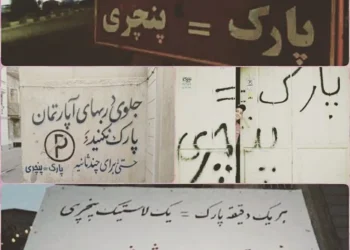 پارک = پنچری
جلوی دربهای آپارتمان
پارک نکنید
حتی برای چند ثانیه
P
پارک = پنچری
پارک =
پنچری
هر یک دقیقه پارک = یک لاستیک پنچری